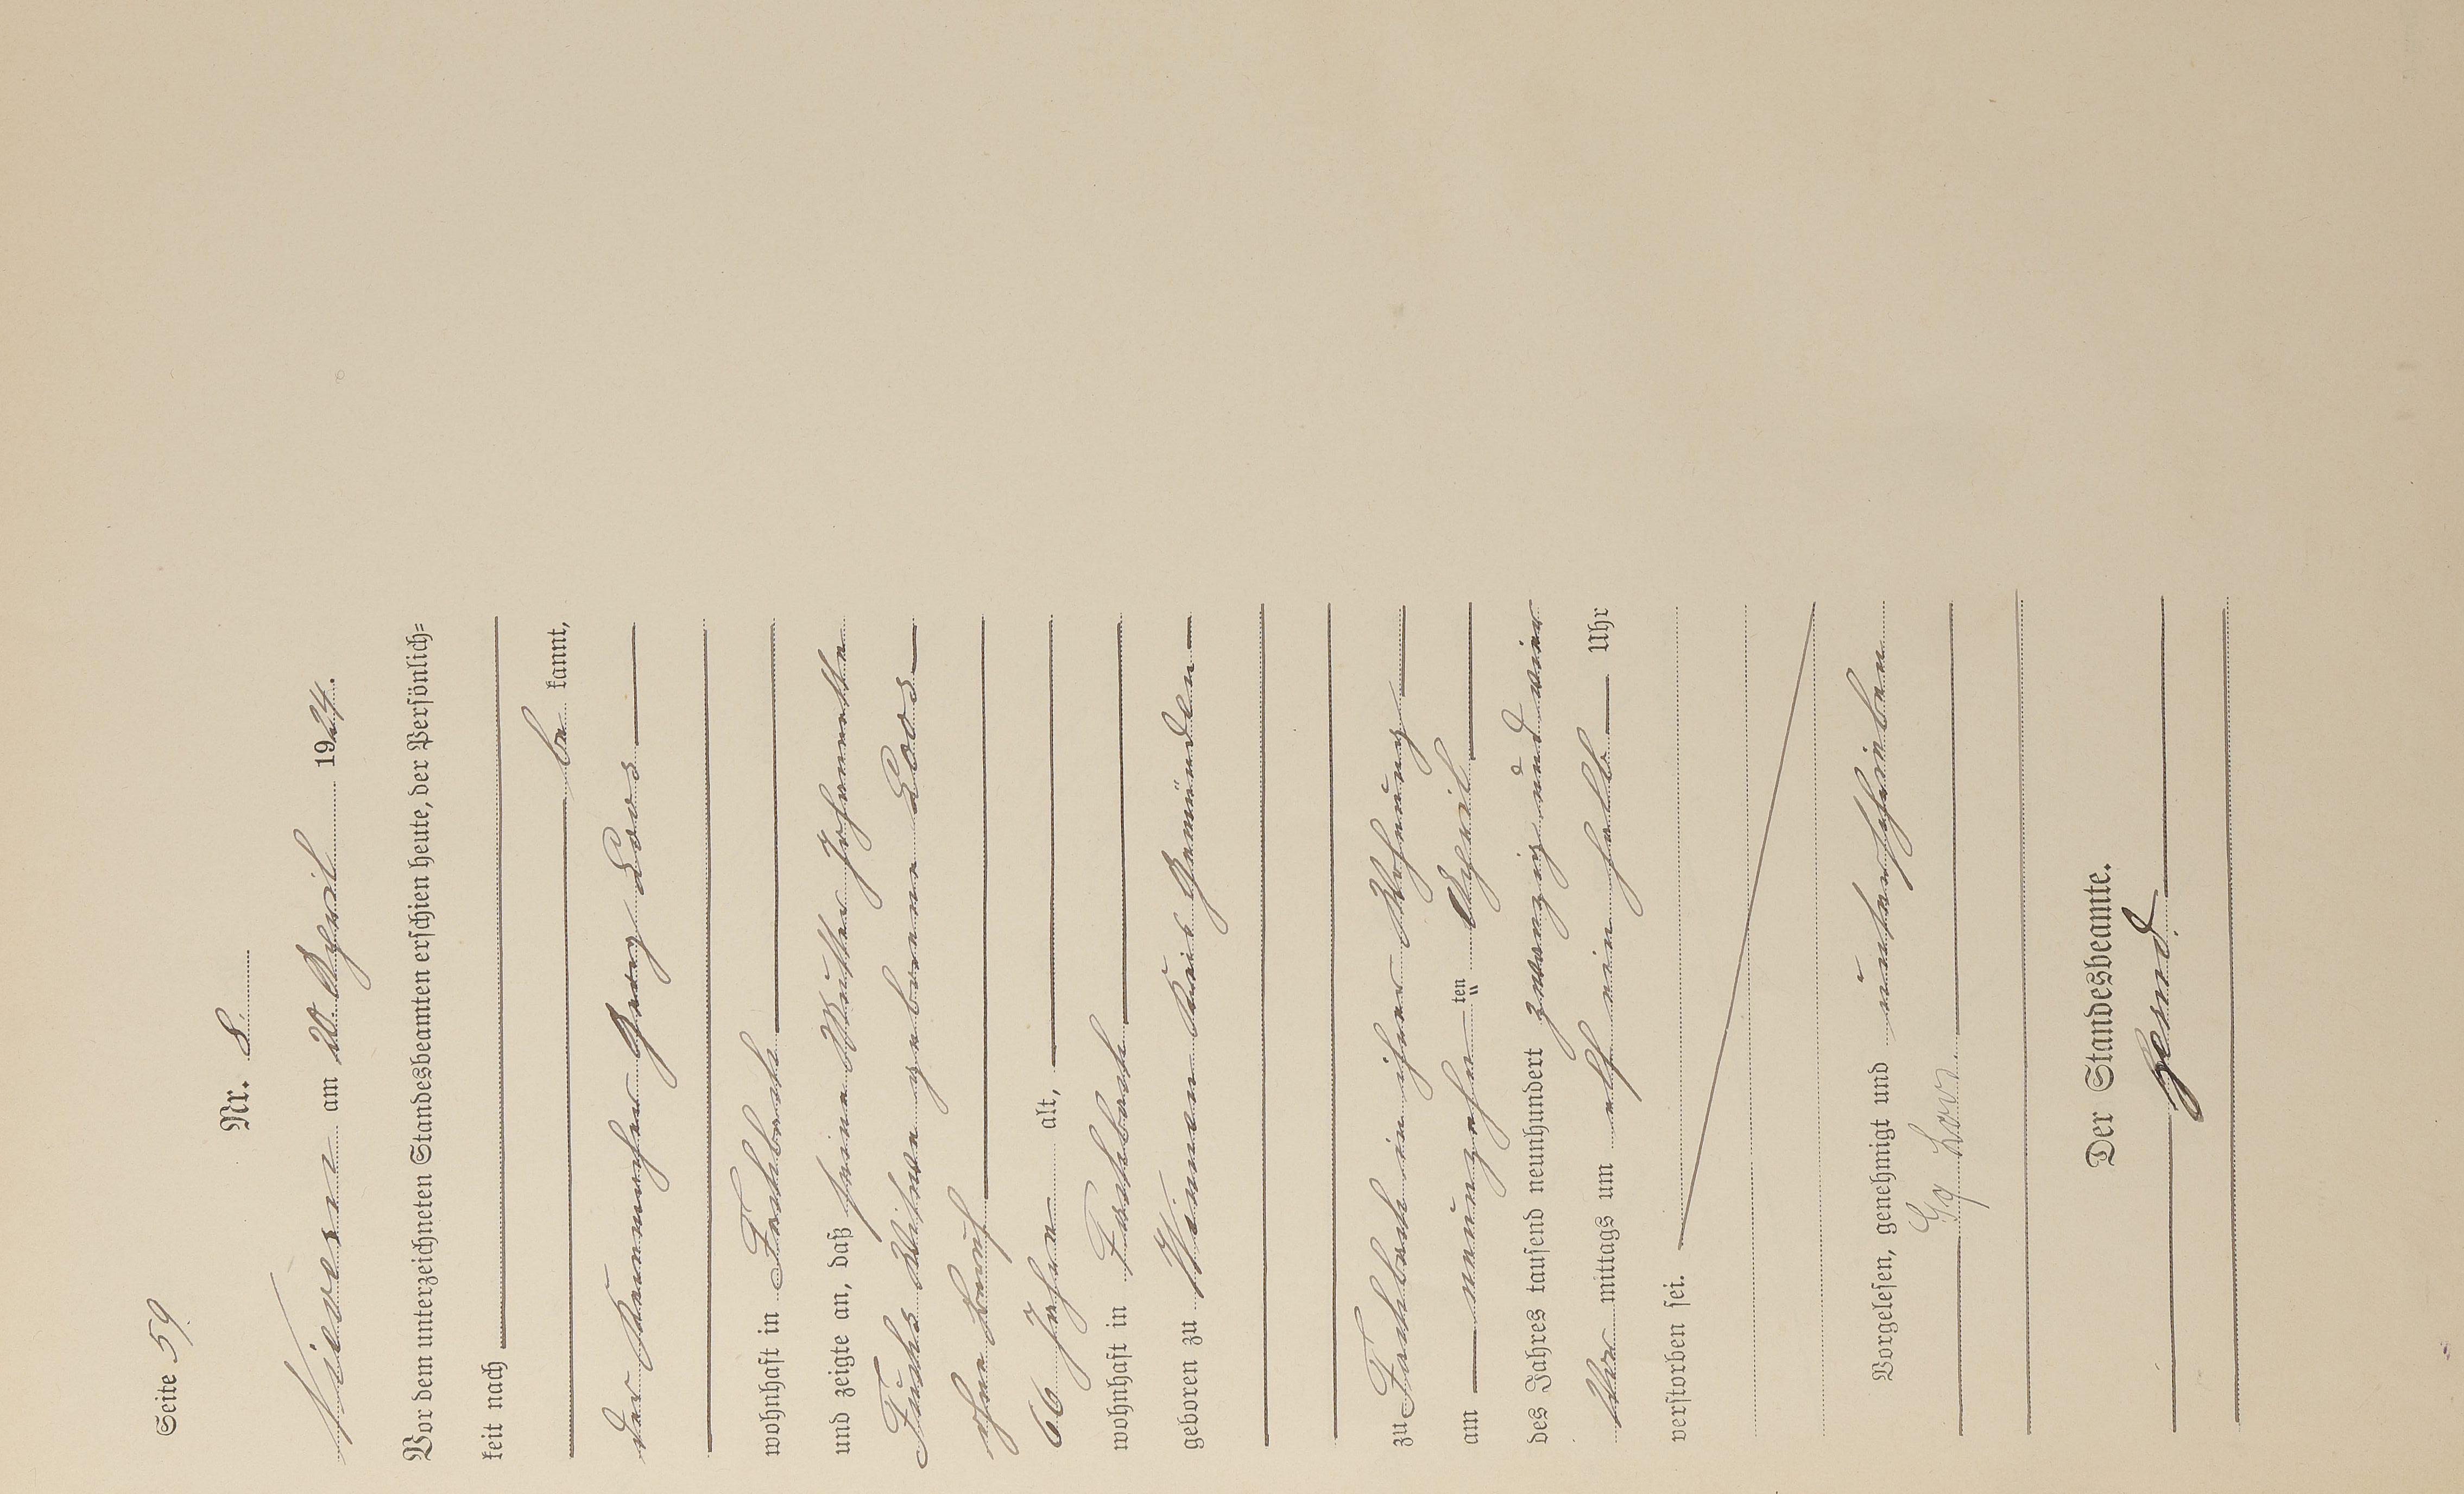 Seite 59.
Nr. 8.
Nievern am 20 April 1924.
Vor dem unterzeichneten Standesbeamten erschien heute, der Persönlich=
keit nach
be kannt,
der Kaufmann Georg Loos
wohnhaft in Fachbach
und zeigte an, daß seine Mutter Johannette
Fuchs Witwe geborene Loos
ohne Beruf
66 Jahre alt,
wohnhaft in Fachbach
geboren zu Winnen Kreis Gemünden
zu Fachbach in ihrer Wohnung
am neunzehn ten April
des Jahres tausend neunhundert zwanzig und vier
Vor mittags um elf ein halb Uhr
verstorben sei.
Vorgelesen, genehmigt und unterschrieben
Gg Loos.
Der Standesbeamte.